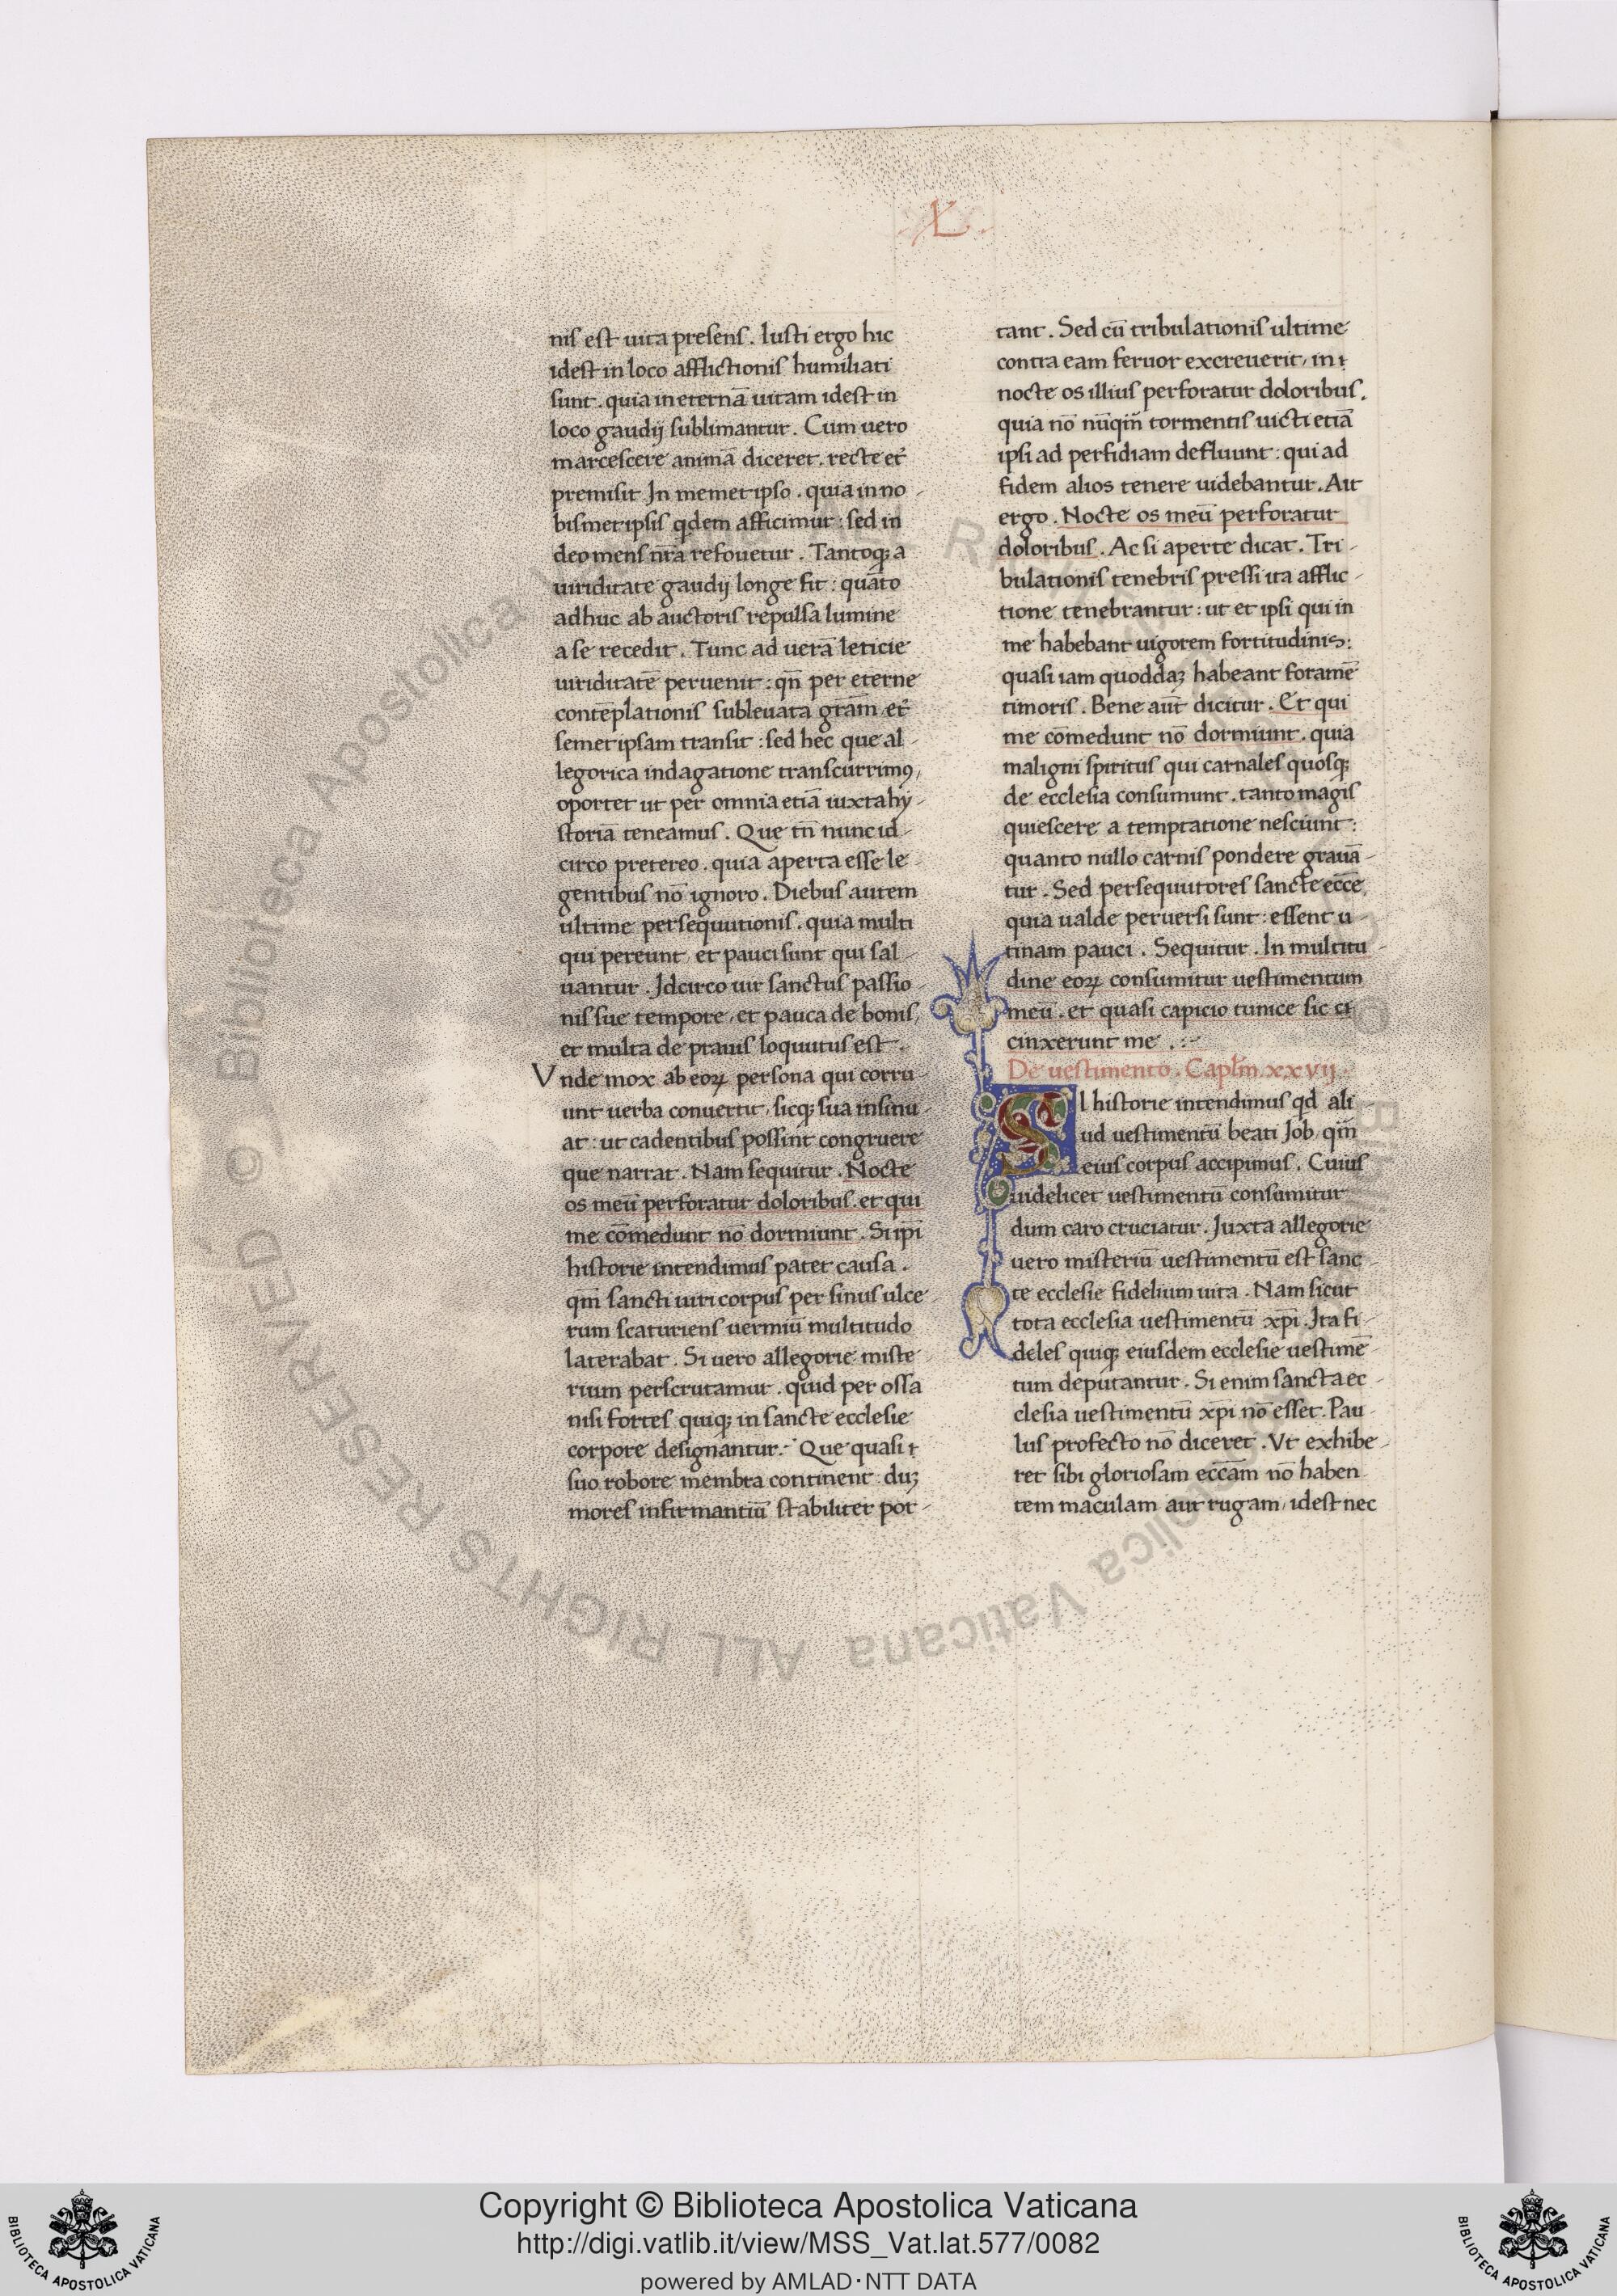 .XL.
nis est uita presens. Iusti ergo hic
idest in loco afflictionis humiliati
sunt. quia in eternā uitam idest in
loco gaudij sublimantur. Cum uero
marcescere animā diceret. recte et
premisit In memet ipso. quia in no-
bismet ipsis qdem afficimur: sed in
deo mens nr̄a refouetur. Tantoq; a
uiriditate gaudij longe fit: quāto
adhuc ab auctoris repulsa lumine
a se recedit. Tunc ad uerā leticie
uiriditatē peruenit: qn̄ per eterne
contēplationis subleuata grām et
semet ipsam transit: sed hec que al-
legorica indagatione transcurrimꝰ,
oportet ut per omnia etiā iuxta hy-
storiā teneamus. Que tn̄ nunc id-
circo pretereo. quia aperta esse le-
gentibus nō ignoro. Diebus autem
ultime persequutionis. quia multi
qui pereunt, et pauci sunt qui sal-
uantur. Idcirco uir sanctus passio-
nis sue tempore, et pauca de bonis,
et multa de prauis loquutus est.
Vnde mox ab eoꝝ persona qui corru-
unt uerba conuertit, sicq; sua insinu-
at: ut cadentibus possint congruere
que narrat. Nam sequitur. Nocte
os meū perforatur doloribus. et qui
me cōmedunt nō dormiunt. Si ipi
historie intendimus patet causa.
qm̄ sancti uiri corpus per sinus ulce-
rum scaturiens uermiū multitudo
laterabat. Si uero allegorie miste-
rium perscrutamur. quid per ossa
nisi fortes quiq; in sancte ecclesie
corpore designantur. Que quasi ī
suo robore membra continent: duꝫ
mores infirmantiū stabiliter por-
tant. Sed cū tribulationis ultime
contra eam feruor excreuerit, in ī
nocte os illius perforatur doloribus.
quia nō nūqm̄ tormentis uicti etiā
ipsi ad perfidiam defluunt: qui ad
fidem alios tenere uidebantur. Ait
ergo. Nocte os meū perforatur
doloribus. Ac si aperte dicat. Tri-
bulationis tenebris pressi ita afflic-
tione tenebrantur: ut et ipsi qui in
me habebant uigorem fortitudinis:
quasi iam quoddaꝫ habeant foramē
timoris. Bene aūt dicitur. Et qui
me cōmedunt nō dormiunt. quia
maligni spiritus qui carnales quosq;
de ecclesia consumunt. tanto magis
quiescere a temptatione nesciunt:
quanto nullo carnis pondere grauā-
tur. Sed persequutores sancte ecc̄e,
quia ualde peruersi sunt: essent u-
tinam pauci. Sequitur. In multitu-
dine eoꝝ consumitur uestimentum
meū. et quasi capicio tunice sic ci
cinxerunt me.
De uestimento. Caplm̄. xxvij.
SI historie intendimus qd ali
ud uestimentū beati Job, qm̄
eius corpus accipimus. Cuius
uidelicet uestimentū consumitur
dum caro cruciatur. Juxta allegorie
uero misteriū uestimentū est sanc-
te ecclesie fidelium uita. Nam sicut
tota ecclesia uestimentū xp̄i. Ita fi-
deles quiq; eiusdem ecclesie uestimē-
tum deputantur. Si enim sancta ec-
clesia uestimentū xp̄i nō esset. Pau-
lus profecto nō diceret. Vt exhibe-
ret sibi gloriosam ecc̄am nō haben-
tem maculam aut rugam, idest nec
© Biblioteca Apostolica Vaticana ALL RIGHTS RESERVED
Copyright © Biblioteca Apostolica Vaticana
http://digi.vatlib.it/view/MSS_Vat.lat.577/0082
powered by AMLAD·NTT DATA
BIBLIOTECA APOSTOLICA VATICANA
BIBLIOTECA APOSTOLICA VATICANA